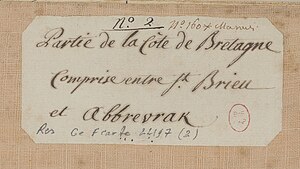 N.º 2
Nº 160 x
Partie de la Côte de Bretagne
Comprise entre S.t Brieu
et Abbrevrak
Res Ge F carte (2)